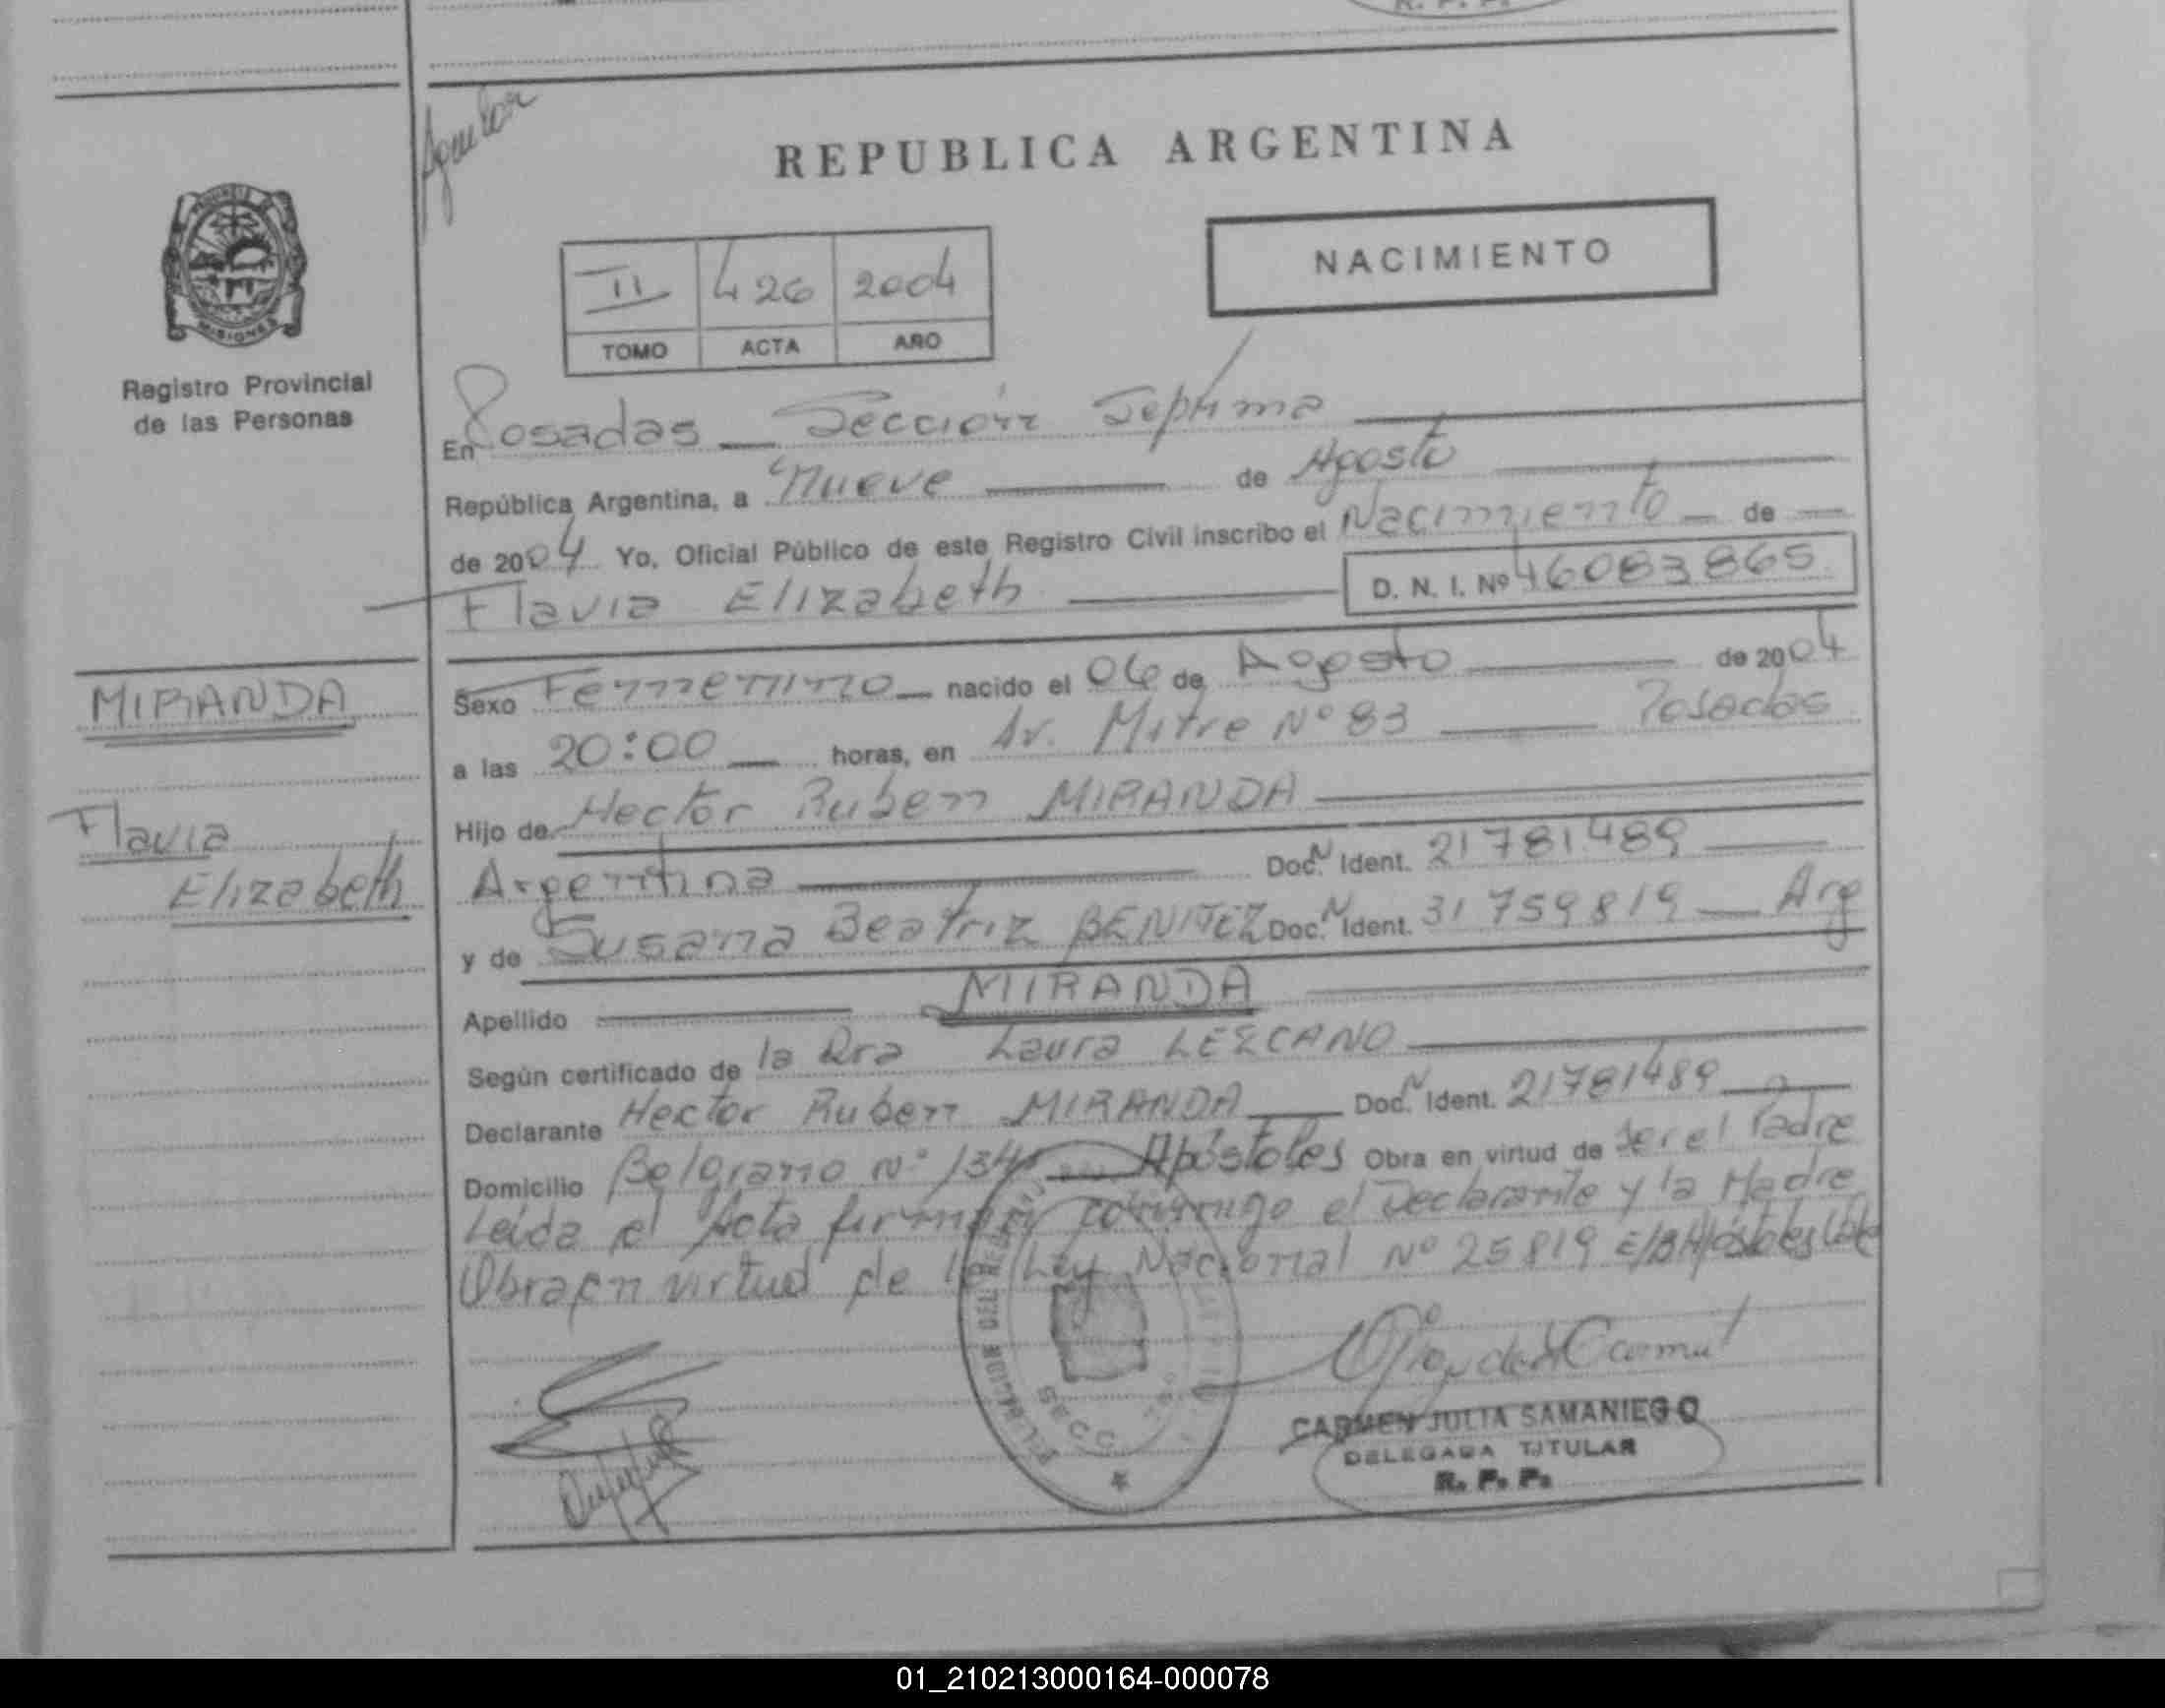 R. P. P.
Aguilar
REPUBLICA ARGENTINA
NACIMIENTO
II 426 2004
TOMO ACTA AÑO
MISIONES
Registro Provincial
de las Personas
En Posadas — Sección Septima
República Argentina, a Nueve de Agosto
de 2004 Yo, Oficial Público de este Registro Civil inscribo el Nacimiento — de —
Flavia Elizabeth D. N. I. Nº 46083865
MIRANDA
Flavia
Elizabeth
Sexo Femenino — nacido el 06 de Agosto de 2004
a las 20:00 — horas, en Av. Mitre Nº 83 — Posadas
Hijo de Hector Ruben MIRANDA
Argentina Doc. N Ident. 21781489
y de Susana Beatriz BENITEZ Doc. N Ident. 31759819 — Arg
Apellido MIRANDA
Según certificado de la Dra Laura LEZCANO
Declarante Hector Ruben MIRANDA Doc. N Ident. 21781489
Domicilio Belgrano Nº 1345 Apóstoles Obra en virtud de ser el Padre
Leída el Acta firman conmigo el Declarante y la Madre
Obra en virtud de la Ley Nacional Nº 25819 E/B Apóstoles
CARMEN JULIA SAMANIEGO
DELEGADA TITULAR
R. P. P.
01_210213000164-000078